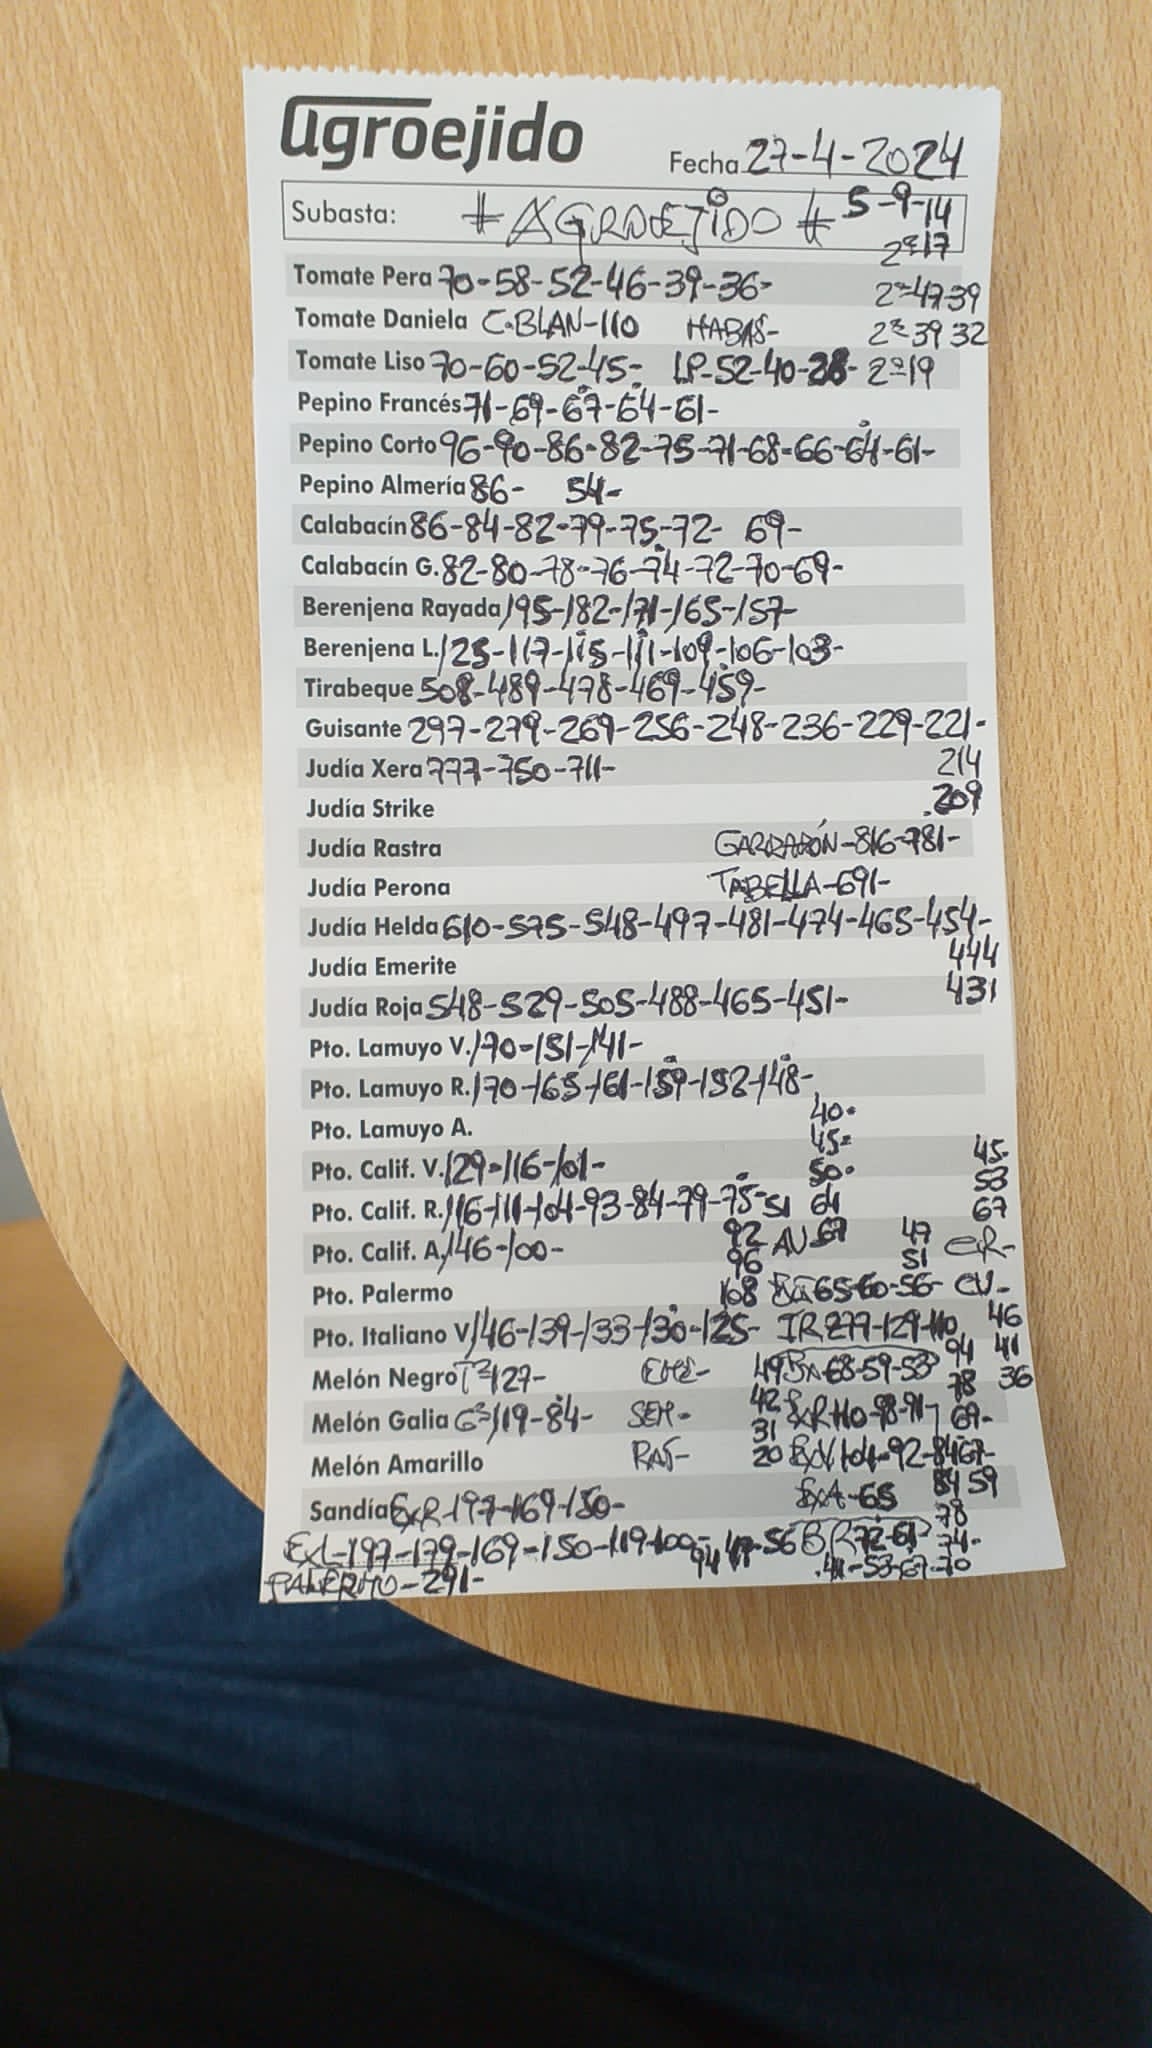 agroejido
Fecha 27-4-2024
Subasta: # AGROEJIDO # 5-9-14
2ª 17
Tomate Pera 70-58-52-46-39-36- 2ª-47-39
Tomate Daniela C.BLAN-110 HABAS- 2ª 39 32
Tomate Liso 70-60-52-45- LP-52-40-28- 2ª 19
Pepino Francés 71-69-67-64-61-
Pepino Corto 96-90-86-82-75-71-68-66-64-61-
Pepino Almería 86- 54-
Calabacín 86-84-82-79-75-72- 69-
Calabacín G. 82-80-78-76-74-72-70-69-
Berenjena Rayada 195-182-171-165-157-
Berenjena L. 125-117-115-111-109-106-103-
Tirabeque 508-489-478-469-459-
Guisante 297-279-269-256-248-236-229-221-
Judía Xera 777-750-711- 214
Judía Strike 209
Judía Rastra GARRAFÓN-816-781-
Judía Perona TABELLA-691-
Judía Helda 610-575-548-497-481-474-465-454-
Judía Emerite 444
Judía Roja 548-529-505-488-465-451- 431
Pto. Lamuyo V. 170-151-141-
Pto. Lamuyo R. 170-165-161-159-152-148-
Pto. Lamuyo A. 40-
45- 45-
Pto. Calif. V. 129-116-101- 50- 53
Pto. Calif. R. 116-111-104-93-84-79-75-51 64 67
Pto. Calif. A. 146-100- 92 AV 67 47 CR-
96 51
Pto. Palermo 108 65-60-56- CV-
Pto. Italiano V. 146-139-133-130-125- IR 279-129-110 46
94 41
Melón Negro Tª 127- 49 68-59-53 78 36
Melón Galia Gª 119-84- SEM- 42 ExR 110-98-91- 69-
31
Melón Amarillo RAF- 20 ExV 104-92-84 67-
84 59
Sandía ExR-197-169-150- ExA-65 78
EXL-197-179-169-150-119-100- 94 47-56 BR 72-61 74-
PALERMO-291- 41-53-67-70